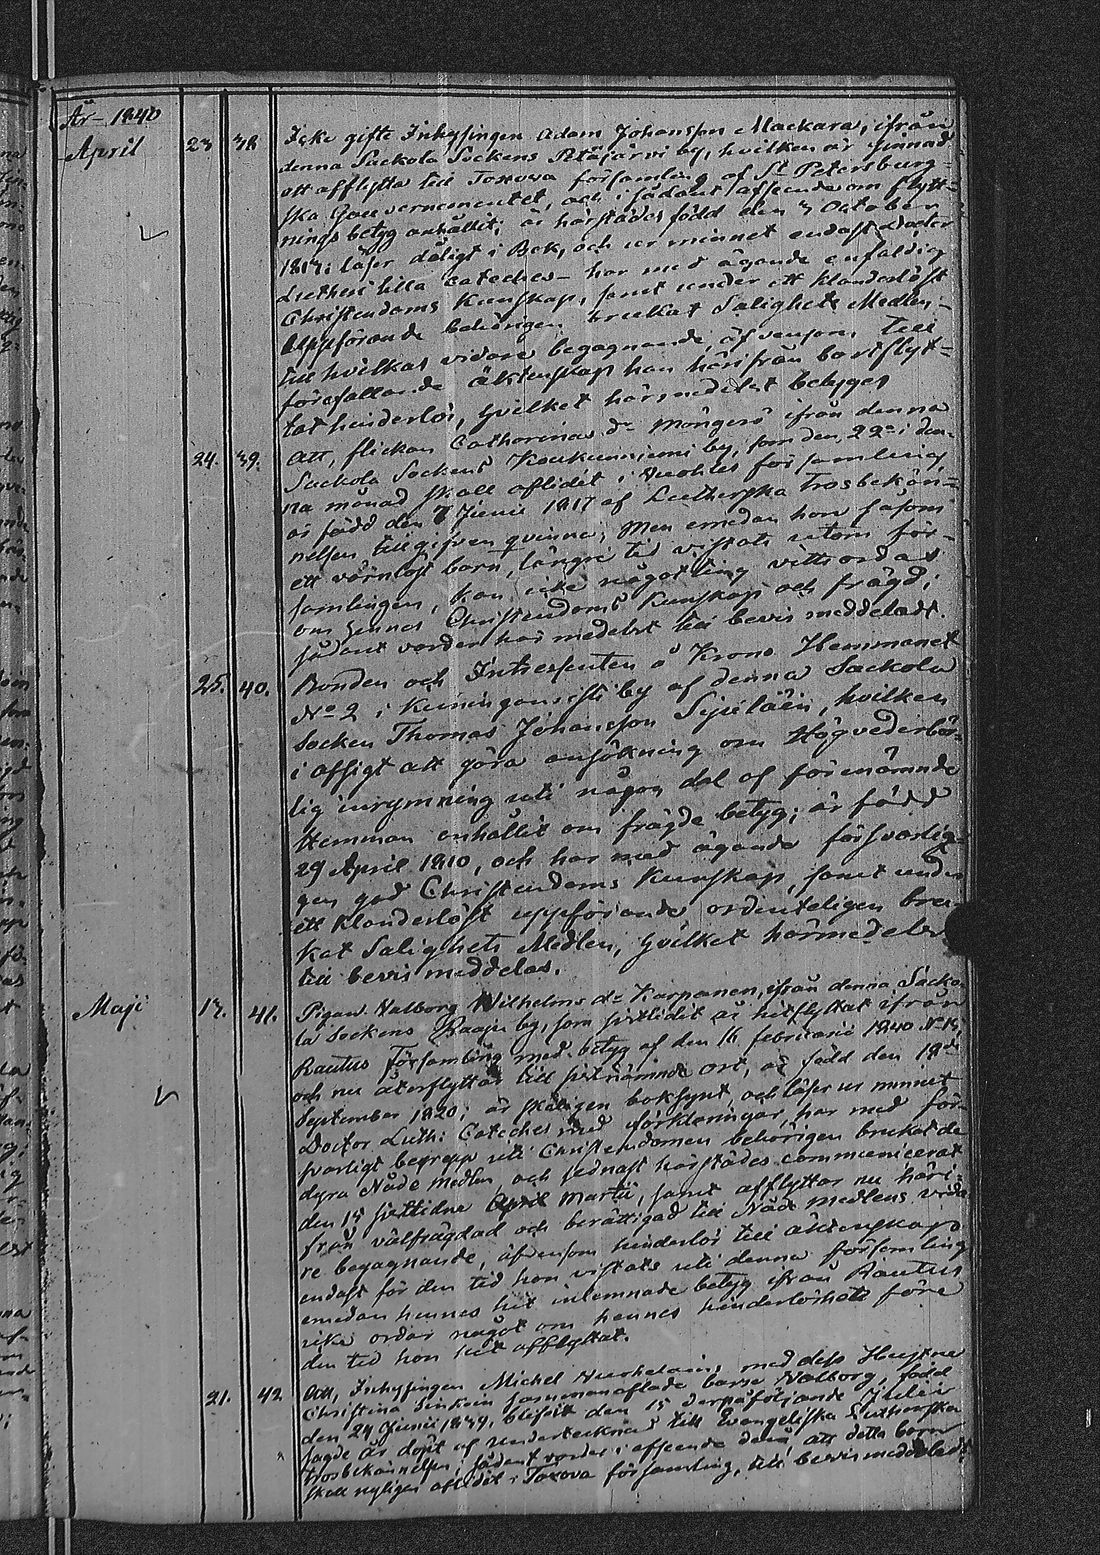 År 1840
April 23 38 Icke gifte Inhysingen Adam Johansson Mackara, ifrån
denna Sackola Sockens Petäjärvi by, hvilken är sinnad
att afflytta till Toxova församling af St Petersburg-
ska Gouvernementet, och i sådant afseende om flytt-
nings betyg anhållit; är härstädes född den 3 October
1817: läser dåligt i Bok, och ur minnet endast Doctor
Lutheri lilla Cateches— har med ägande enfaldig
Christendoms Kunskap, samt under ett klanderlöst
uppförande behörigen brukat Salighets Medlen—
till hvilkas vidare begagnande, äfvensom till
förefallande äktenskap han härifrån bortflyt-
tat hinderlös, hvilket härmedelst betyges
24. 39. Att, flickan Catharina Möngerö ifrån denna
Sackola Sockens Koukunniemi by, som den 22 i den-
na månad skall aflidit i församling,
är född den 7 Junii 1817 af Lutherska Trosbekän-
nelsen tillgifven qvinna; Men emedan hon såsom
ett värnlöst barn, längre tid vistats utom för-
samlingen, kan icke någonting vittsordas
om hennes Christendoms Kunskap och frägd;
sådant varder härmedelst till bevis meddeladt.
25. 40. Bonden och Intressenten å Krono Hemmanet
No 2 i Kuninganristi by af denna Sackola
Socken Thomas Johansson hvilken
i afsigt att göra ansökning om Högvederbör-
lig inrymning uti någon del af förenämnde
Hemman anhållit om frägde betyg; är född
29 April 1810, och har med ägande försvarli-
gen god Christendoms Kunskap, samt under
ett klanderlöst uppförande ordenteligen bru-
kat Salighets Medlen, hvilket härmedelst
till bevis meddelas.
Maji 17. 41. Pigan Valborg Wilhelms dr Karpanen, ifrån denna Sacko-
la Sockens Haapa by, som sistlidit år hitflyttat ifrån
Rautus Församling med betyg af den 16 februarii 1840 No 14,
och nu återflyttar till sistnämnde ort, är född den 18de
September 1820; är skäligen boksynt, och läser ur minnet
Doctor Luth: Cateches med förklaringar, har med för-
svarligt begrepp uti Christendomen behörigen brukat de
dyra Nåde Medlen, och sednast härstädes communicerat
den 15 sistlidne Martii, samt afflyttar nu häri-
från välfrägdad och berättigad till Nåde medlens vida-
re begagnande, äfvensom hinderlös till äktenskap
endast för den tid hon vistats uti denna församling
emedan hennes hit inlemnade betyg ifrån Rautus
icke ordar något om hennes hinderlöshet före
den tid hon hit afflyttat.
21. 42. Att, Inhysingen Michel med dess Hustru
Christina sammanaflade barn Valborg, född
den 24 Junii 1839, blifvit den 15 derpåföljande Julii
sagde år döpt af undertecknad till Evangeliska Lutherska
trosbekännelsen, sådant varder, i afseende derå att detta barn
skall nyligen aflidit i Toxova församling, till bevis meddeladt.